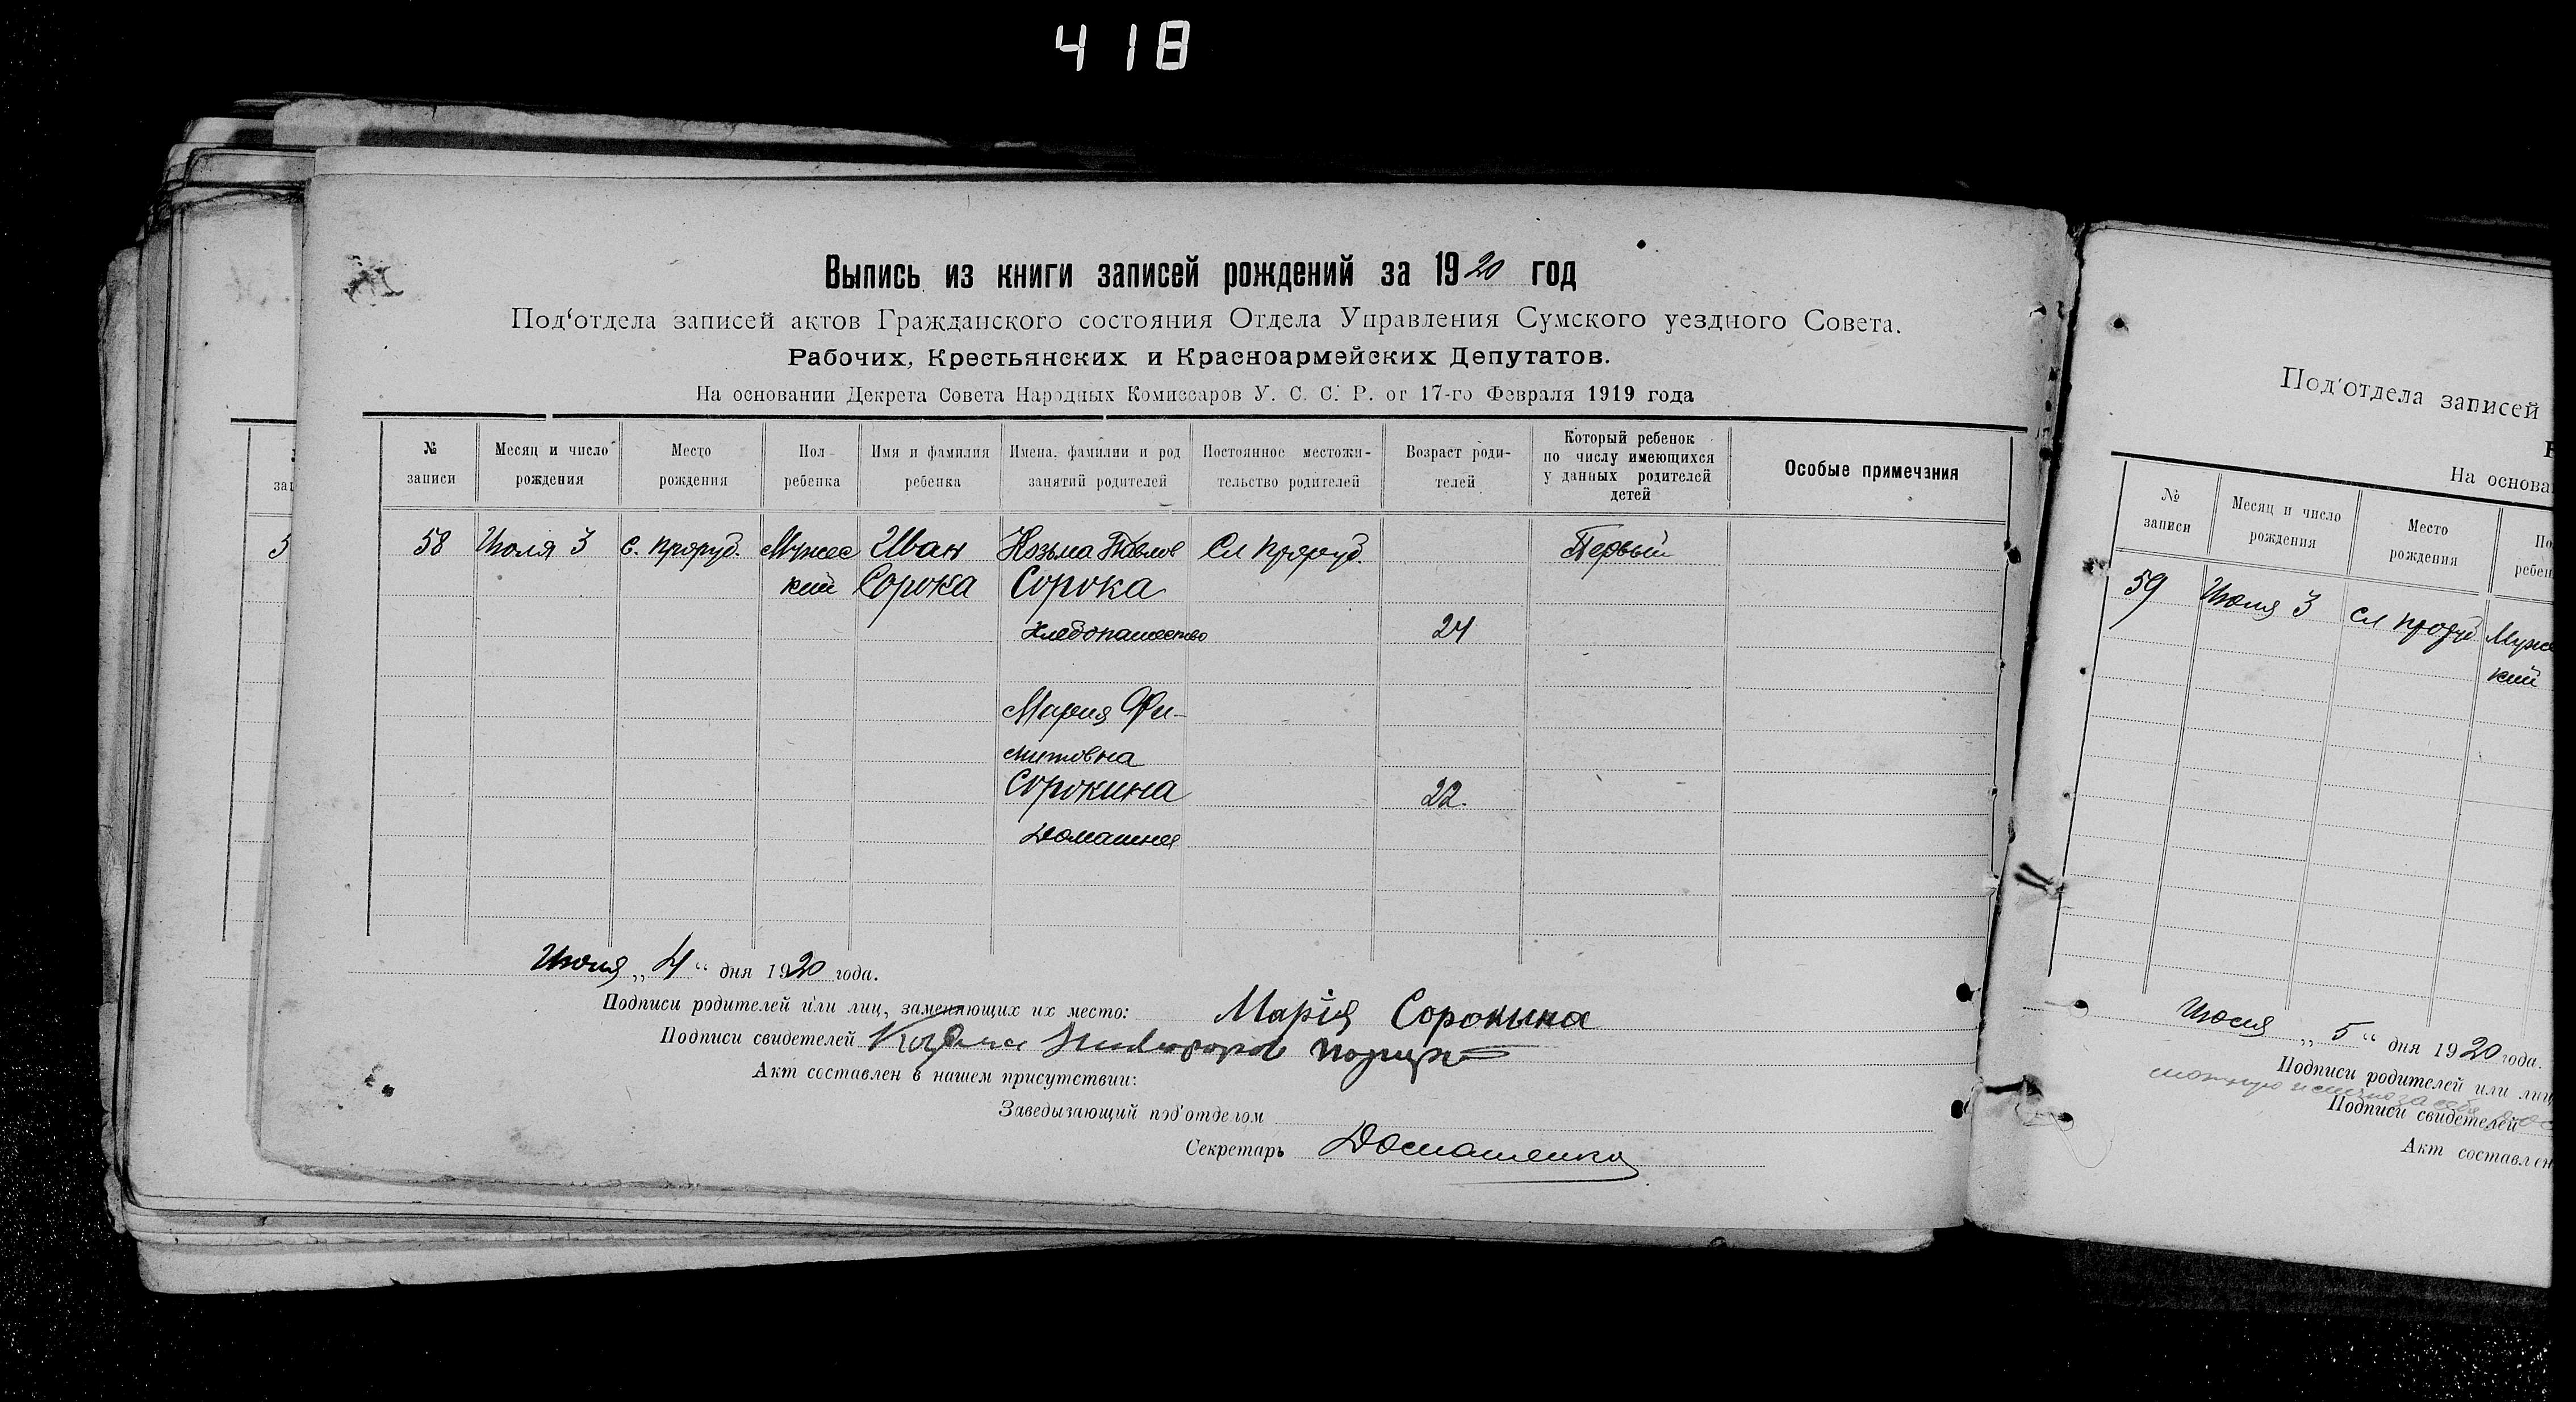 418
Выпись из книги записей рождений за 1920 год
Под‘отдела записей актов Гражданского состояния Отдела Управления Сумского уездного Совета.
Рабочих, Крестьянских и Красноармейских Депутатов.
На основании Декрета Совета Народных Комиссаров У. С. С. Р. от 17-го Февраля 1919 года
№ записи
Месяц и число рождения
Место рождения
Пол ребенка
Имя и фамилия ребенка
Имена, фамилии и род занятий родителей
Постоянное местожительство родителей
Возраст родителей
Который ребенок по числу имеющихся у данных родителей детей
Особые примечания
58 Июля 3 с. Проруб. Мужес Иван Козьма Павлов Сл Проруб. Первый
кий Сорока Сорока
Хлебопашество 24
Мария Фи-
литовна
Сорокина 22.
Домашнея
Июля „4“ дня 1920 года.
Подписи родителей или лиц, заменяющих их место: Марія Сорокина
Подписи свидетелей
Акт составлен в нашем присутствии:
Заведызающий под‘отделом
Секретарь Домашенко
Под‘отдела записей
На основа
№ записи
Месяц и число рождения
Место рождения
По
ребен
59 Июля 3 Сл Проруб Муже
кий
Июля „5“ дня 1920 года.
Подписи родителей или лиц
Подписи свидетелей
Акт составлен